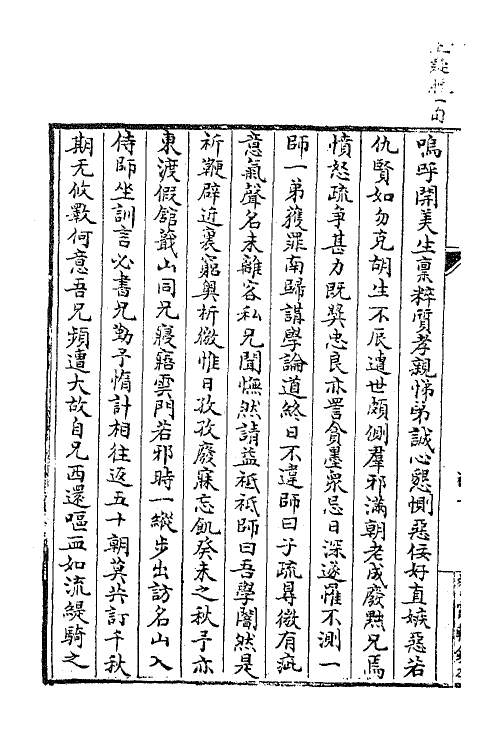 嗚呼開美生稟粹質孝親悌弟誠心懇惻惡佞好直嫉惡若
仇賢如勿克胡生不辰遘世頗側羣邪滿朝老成廢黜兄焉
憤怒疏爭甚力既奬忠良亦詈貪墨衆忌日深遂罹不測一
師一弟獲罪南歸講學論道終日不違師曰子疏尋微有疵
意氣聲名未離客私兄聞憮然請益祗祗師曰吾學闇然是
祈鞭辟近裏窮奥析微惟日孜孜廢寐忘飢癸未之秋予亦
東渡假館蕺山同兄寢寤雲門若邪時一縱步出訪名山入
侍師坐訓言必書兄勤予惰計相往返五十朝莫共訂千秋
期无攸斁何意吾兄頻遭大故自兄西還嘔血如流緹騎之